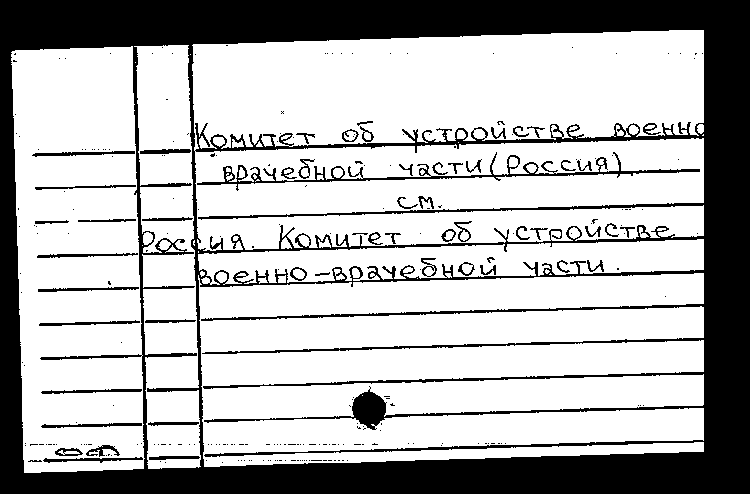 Комитет об устройстве военно
врачебной части (Россия)
см.
Россия. Комитет об устройстве
военно-врачебной части.